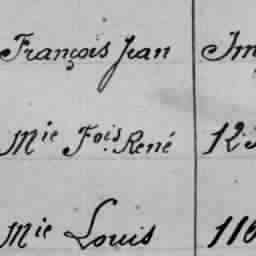 François Jean Im
Mie Fois. René 123
Mie Louis 116